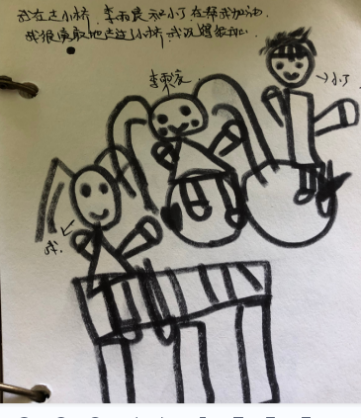 我在走小桥，李雨晨和小丁在替我加油，
我很勇敢地走过小桥，我没有掉
李雨晨
→小丁
我